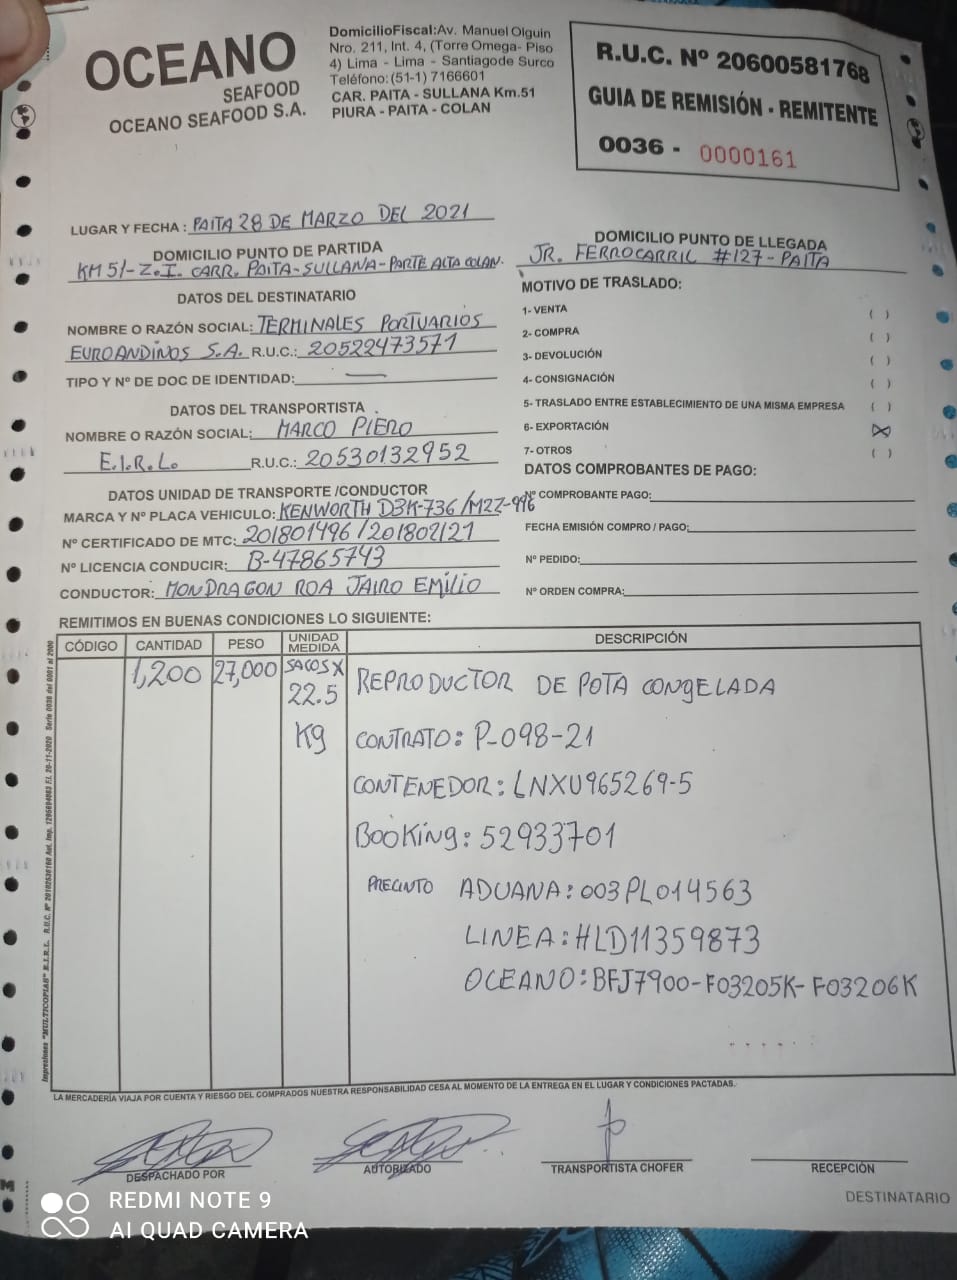 OCEANO
SEAFOOD
OCEANO SEAFOOD S.A.
DomicilioFiscal:Av. Manuel Olguin
Nro. 211, Int. 4, (Torre Omega- Piso
4) Lima - Lima - Santiagode Surco
Teléfono:(51-1) 7166601
CAR. PAITA - SULLANA Km.51
PIURA - PAITA - COLAN
R.U.C. Nº 20600581768
GUIA DE REMISIÓN - REMITENTE
0036 - 0000161
LUGAR Y FECHA : PAITA 28 DE MARZO DEL 2021
DOMICILIO PUNTO DE PARTIDA
KM 51-Z.I. CARR. PAITA-SULLANA-PARTE ALTA COLAN.
DOMICILIO PUNTO DE LLEGADA
JR. FERROCARRIL #127-PAITA
DATOS DEL DESTINATARIO
NOMBRE O RAZÓN SOCIAL: TERMINALES PORTUARIOS
EUROANDINOS S.A. R.U.C.: 20522473571
TIPO Y Nº DE DOC DE IDENTIDAD: —
DATOS DEL TRANSPORTISTA
NOMBRE O RAZÓN SOCIAL: MARCO PIERO
E.I.R.L. R.U.C.: 20530132952
DATOS UNIDAD DE TRANSPORTE /CONDUCTOR
MARCA Y Nº PLACA VEHICULO: KENWORTH D3K-736/M2Z-996
Nº CERTIFICADO DE MTC: 201801496/201802121
Nº LICENCIA CONDUCIR: B-47865743
CONDUCTOR: MONDRAGON ROA JAIRO EMILIO
MOTIVO DE TRASLADO:
1- VENTA ( )
2- COMPRA ( )
3- DEVOLUCIÓN ( )
4- CONSIGNACIÓN ( )
5- TRASLADO ENTRE ESTABLECIMIENTO DE UNA MISMA EMPRESA ( )
6- EXPORTACIÓN (X)
7- OTROS ( )
DATOS COMPROBANTES DE PAGO:
Nº COMPROBANTE PAGO:
FECHA EMISIÓN COMPRO / PAGO:
Nº PEDIDO:
Nº ORDEN COMPRA:
REMITIMOS EN BUENAS CONDICIONES LO SIGUIENTE:
CÓDIGO CANTIDAD PESO UNIDAD MEDIDA DESCRIPCIÓN
1,200 27,000 SACOS X
22.5
Kg
REPRODUCTOR DE POTA CONGELADA
CONTRATO: P-098-21
CONTENEDOR: LNXU965269-5
BOOKING: 52933701
PRECINTO ADUANA: 003PL014563
LINEA: HLD11359873
OCEANO: BFJ7900-F03205K-F03206K
LA MERCADERÍA VIAJA POR CUENTA Y RIESGO DEL COMPRADOS NUESTRA RESPONSABILIDAD CESA AL MOMENTO DE LA ENTREGA EN EL LUGAR Y CONDICIONES PACTADAS.
DESPACHADO POR
AUTORIZADO
TRANSPORTISTA CHOFER
RECEPCIÓN
DESTINATARIO
REDMI NOTE 9
AI QUAD CAMERA